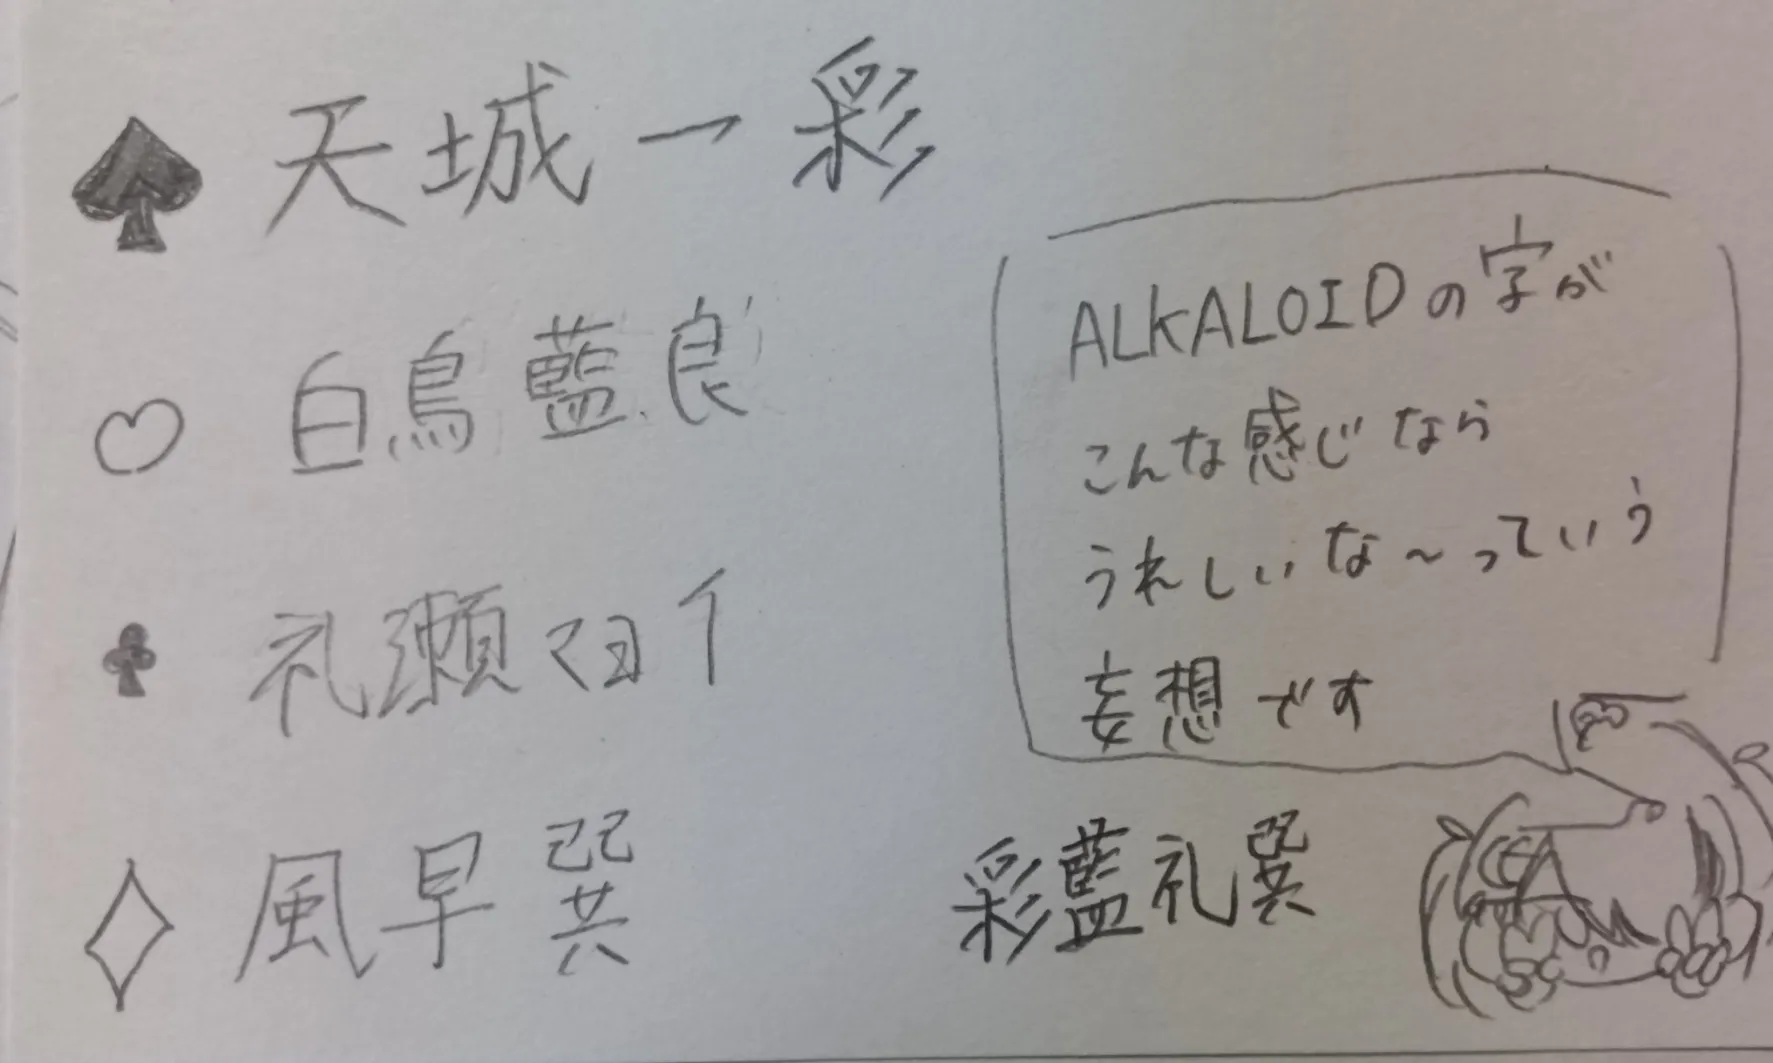 ♠ 天城一彩
♡ 白鳥藍良
♣ 礼瀬マヨイ
♢ 風早巽
ALKALOIDの字が
こんな感じなら
うれしいな～っていう
妄想です
彩藍礼巽